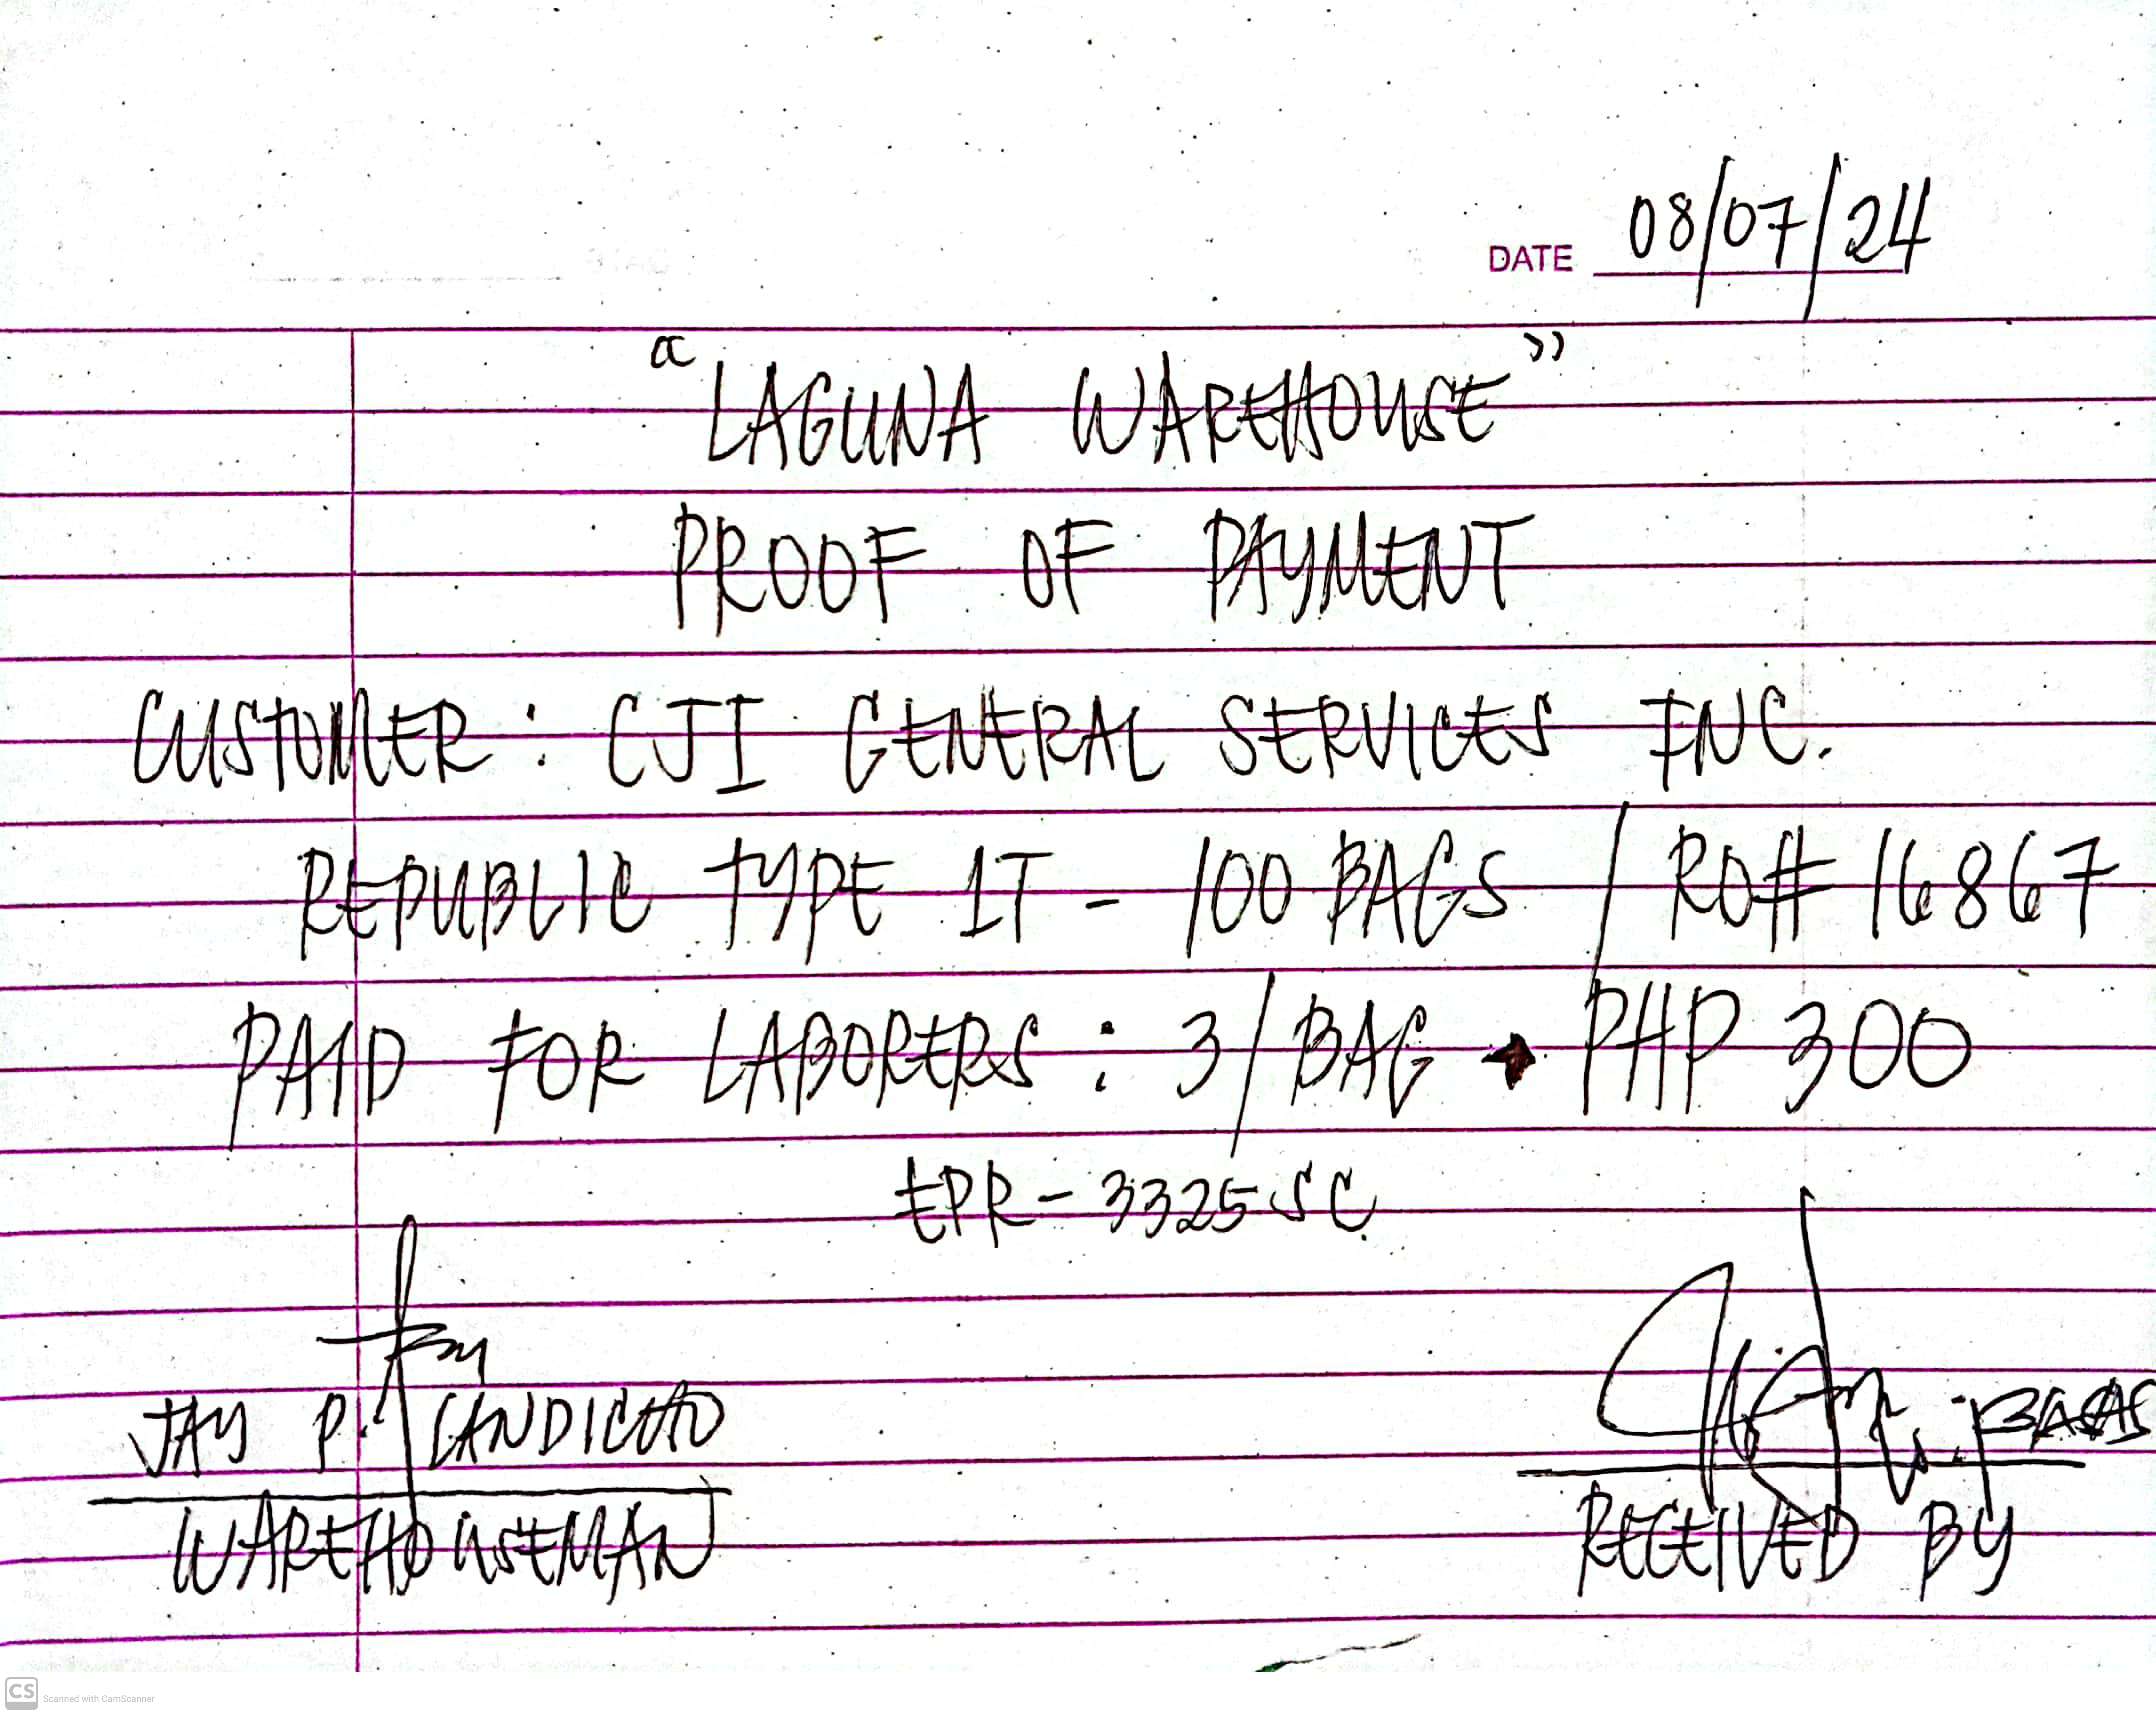 DATE 08/07/24
"LAGUNA WAREHOUSE"
PROOF OF PAYMENT
CUSTOMER : CJI GENERAL SERVICES INC.
REPUBLIC TYPE 1T - 100 BAGS / RO# 16867
PAID FOR LABORERS : 3/BAG → PHP 300
EPR - 3325 SC
JAY P. CANDICHO
WAREHOUSEMAN
RECEIVED BY
CS Scanned with CamScanner